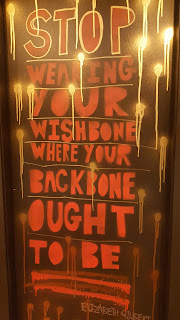 STOP
WEARING
YOUR
WISHBONE
WHERE YOUR
BACKBONE
OUGHT
TO BE
ELIZABETH GILBERT